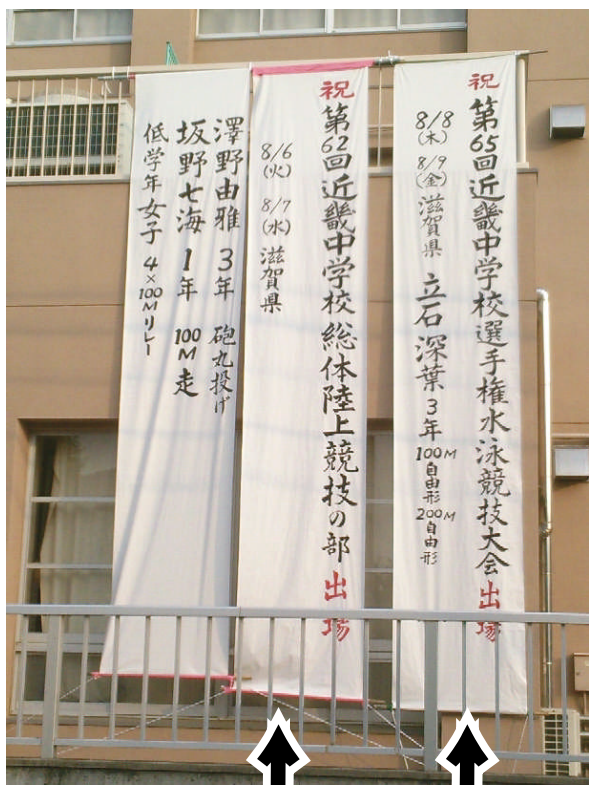 祝第65回近畿中学校選手権水泳競技大会出場
8/8(木) 8/9(金) 滋賀県 立石深葉 3年 100M自由形 200M自由形
祝第62回近畿中学校総体陸上競技の部出場
8/6(火) 8/7(水) 滋賀県
澤野由雅 3年 砲丸投げ
坂野七海 1年 100M走
低学年女子 4×100Mリレー